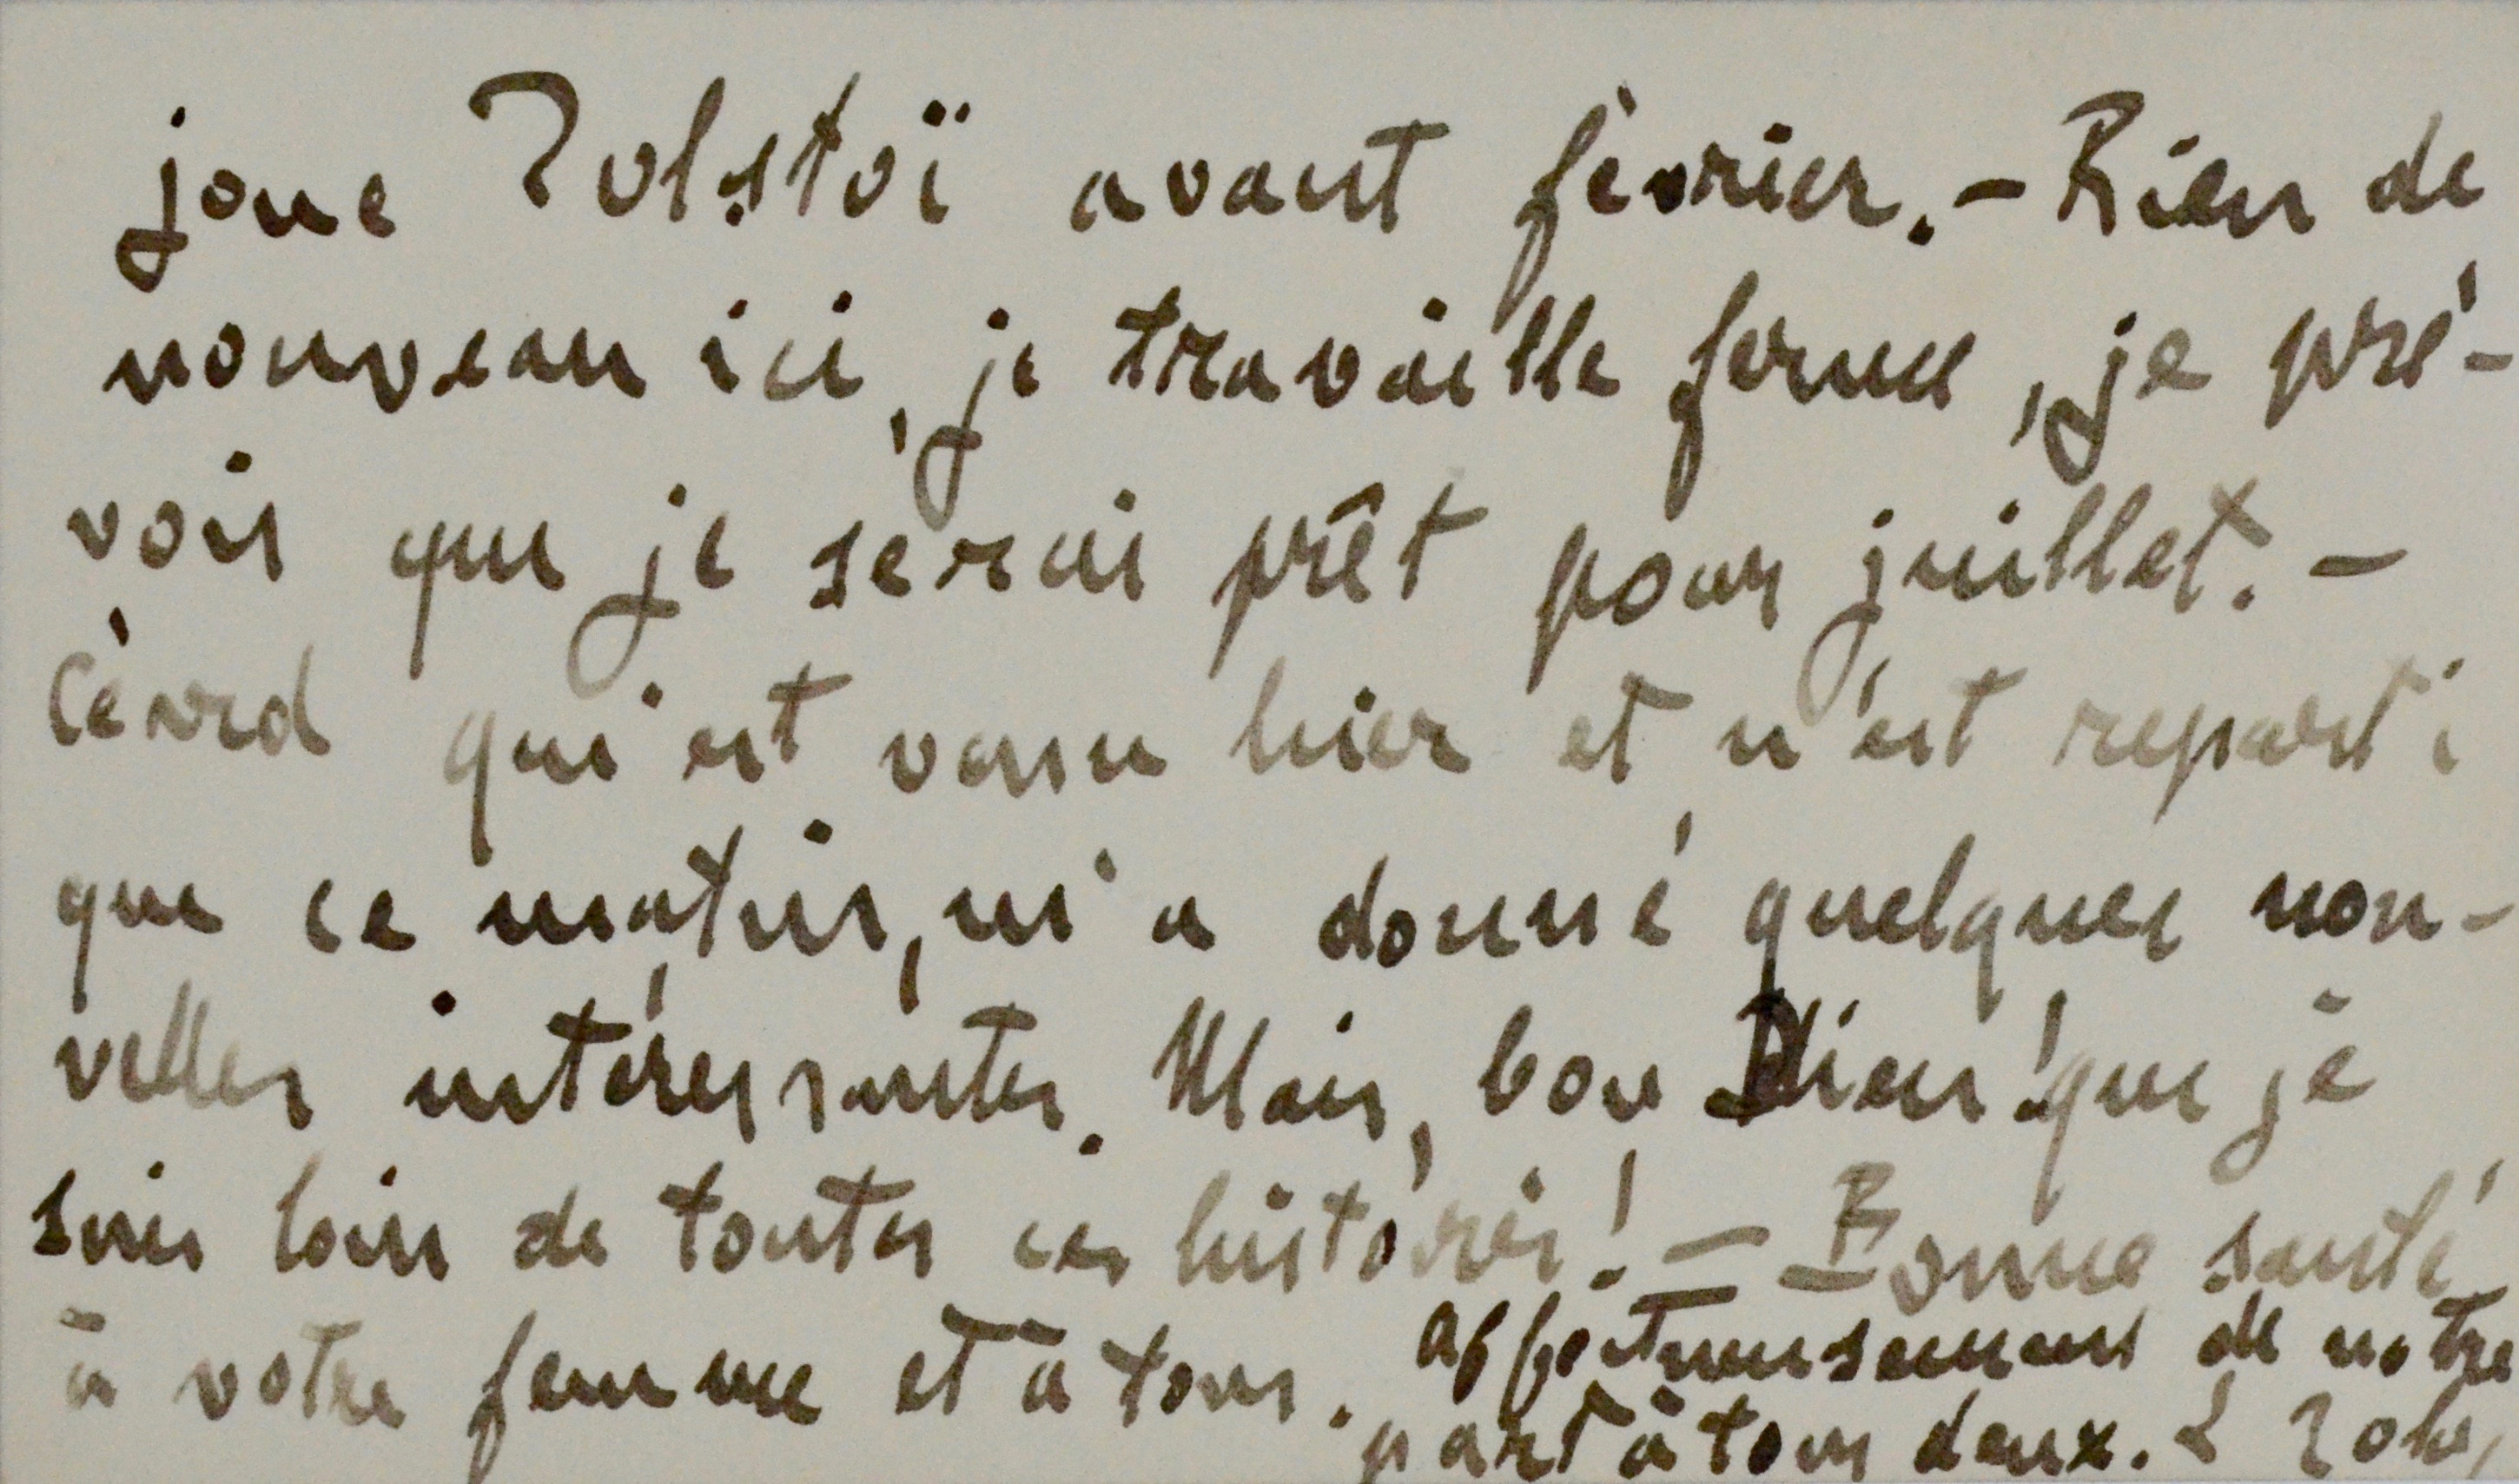 joue Tolstoï avant février. – Rien de
nouveau ici, je travaille ferme, je pré-
vois que je serai prêt pour juillet. –
Céard qui est venu hier et n'est reparti
que ce matin, m'a donné quelques nou-
velles intéressantes. Mais, bon Dieu ! que je
suis loin de toutes ces histoires ! – Bonne santé
à votre femme et à tous. Affectueusement de notre
part à tous deux. E Zola